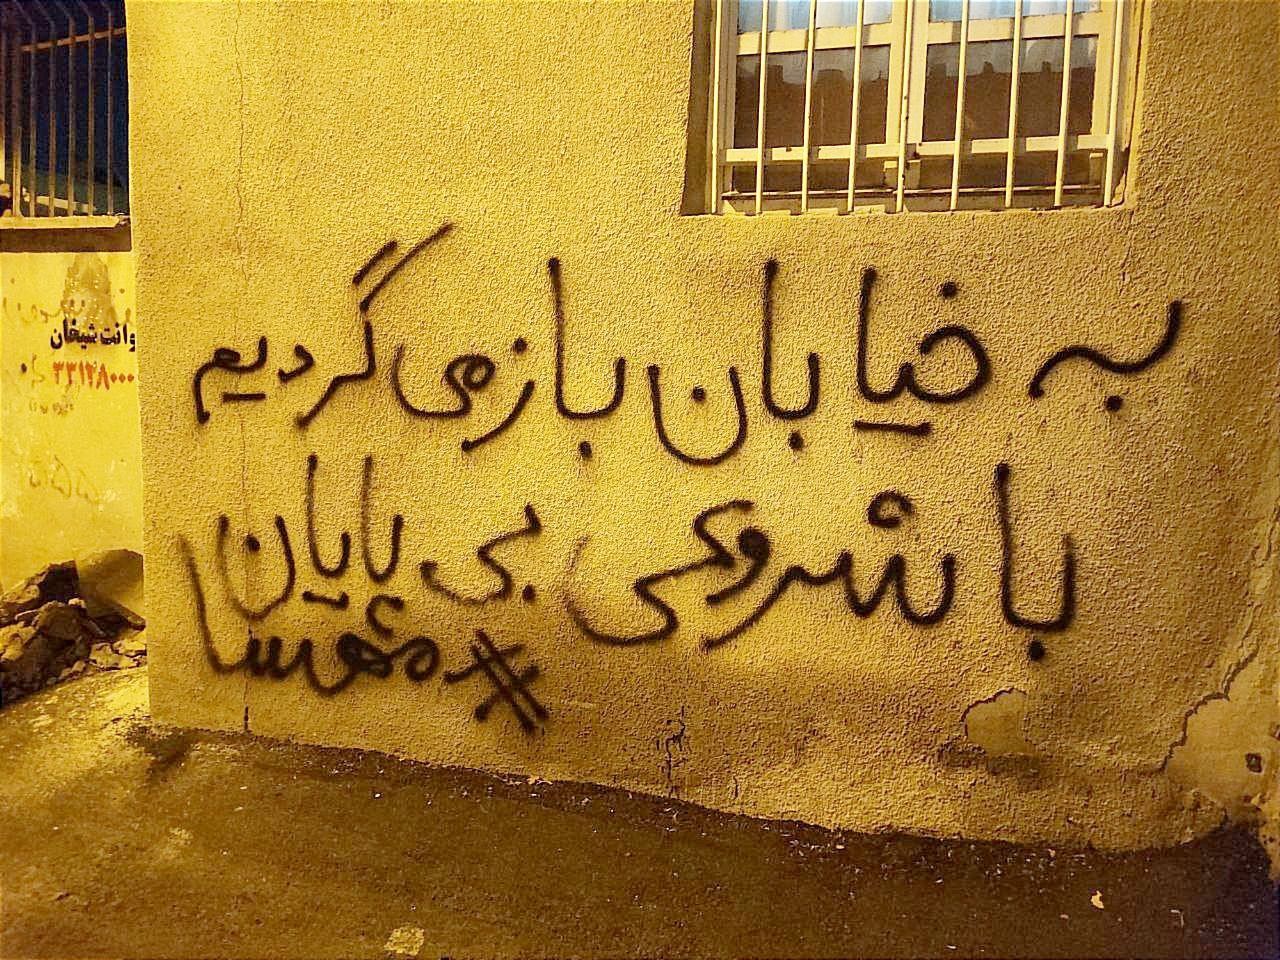 به خیابان بازمی گردیم
با شروعی بی پایان
#مهسا
وانت شیخان
۳۳۱۲۸۰۰۰